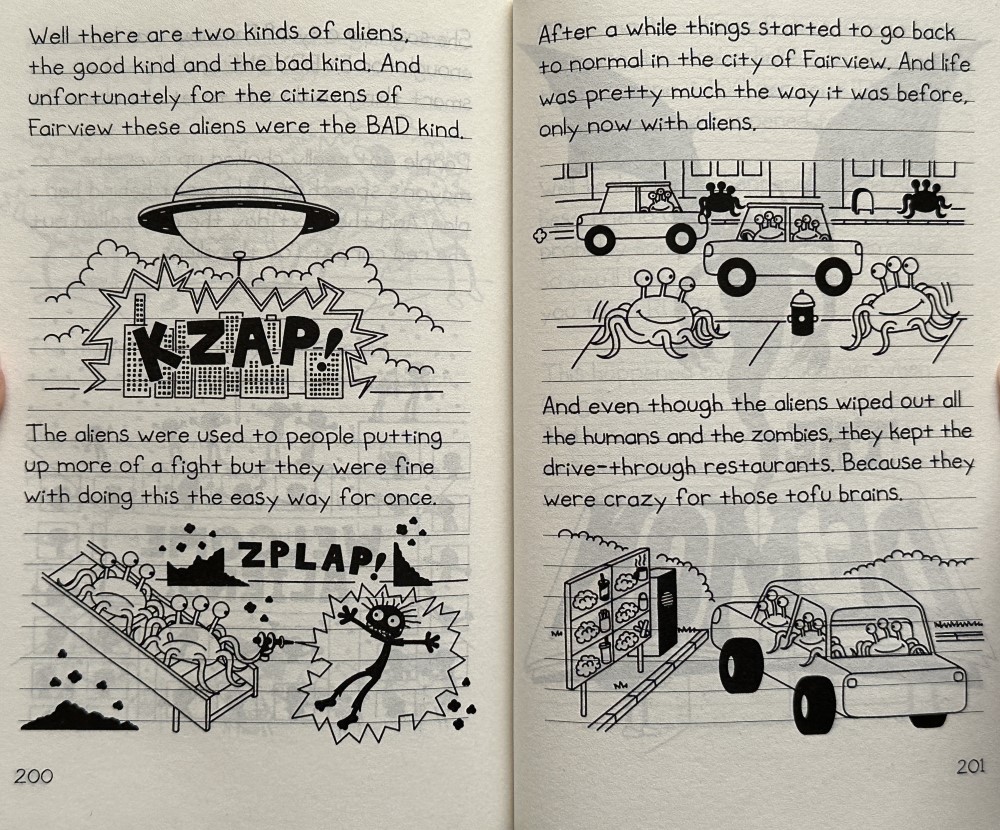 Well there are two kinds of aliens,
the good kind and the bad kind. And
unfortunately for the citizens of
Fairview these aliens were the BAD kind.
KZAP!
The aliens were used to people putting
up more of a fight but they were fine
with doing this the easy way for once.
ZPLAP!
200
After a while things started to go back
to normal in the city of Fairview. And life
was pretty much the way it was before,
only now with aliens.
And even though the aliens wiped out all
the humans and the zombies, they kept the
drive-through restaurants. Because they
were crazy for those tofu brains.
201